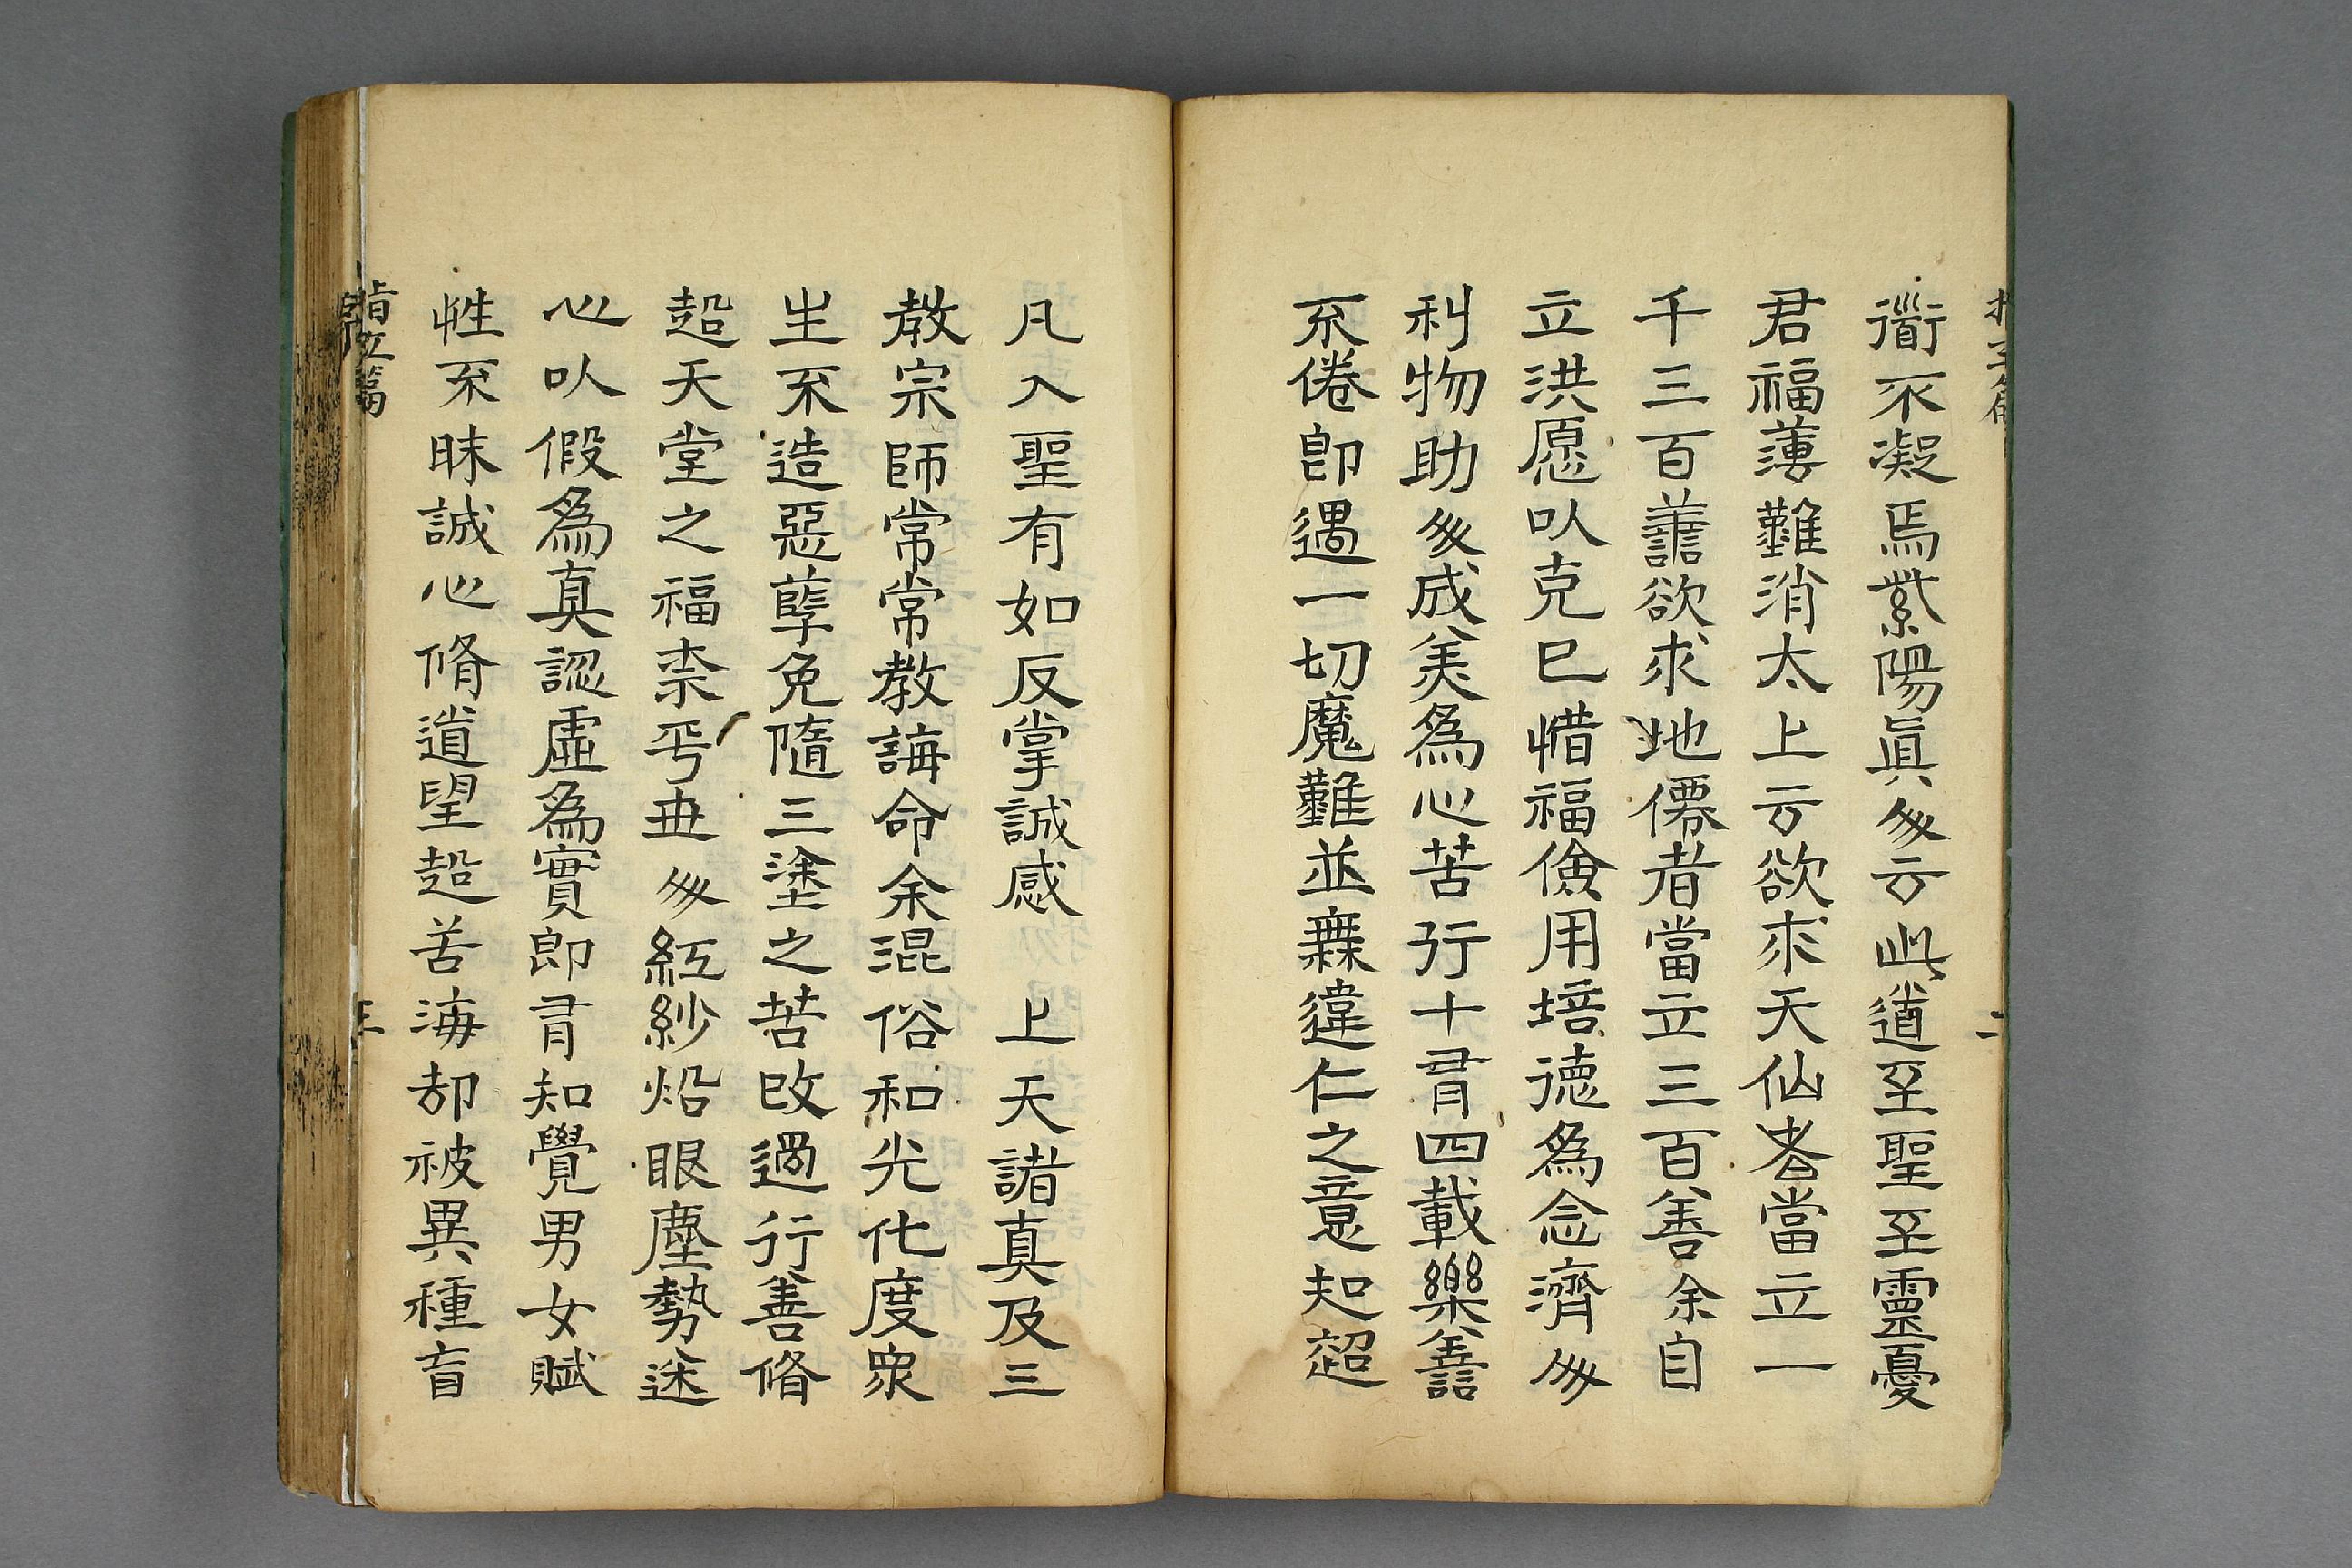 衟不凝焉紫陽眞人云此道至聖至靈憂
君福薄難消太上云欲求天仙者當立一
千三百譱欲求地僊者當立三百善余自
立洪愿以克已惜福儉用培德為念濟人
利物助人成美為心苦行十有四載樂譱
不倦即遇一切魔難並無違仁之意起超
凡入聖有如反掌誠感　上天諸真及三
教宗師常常教誨命余混俗和光化度眾
生不造惡孽免隨三塗之苦改過行善脩
超天堂之福柰乎世人紅紗焰眼塵勢迷
心以假為真認虛為實即有知覺男女賦
性不昧誠心脩道望超苦海却被異種盲
指立篇